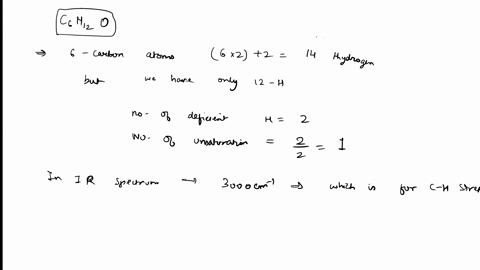 C6H12O
⇒ 6-carbon atoms (6×2)+2 = 14 Hydrogen
but we have only 12-H
no. of deficient H = 2
No. of unsaturation = 2/2 = 1
In IR spectrum → 3000cm⁻¹ ⇒ which is for C-H stre